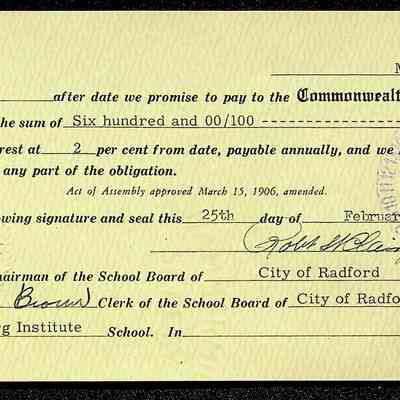 after date we promise to pay to the Commonwealth
he sum of Six hundred and 00/100 --------------
rest at 2 per cent from date, payable annually, and we
any part of the obligation.
Act of Assembly approved March 15, 1906, amended.
owing signature and seal this 25th day of Februar
hairman of the School Board of City of Radford
Brown Clerk of the School Board of City of Radfo
rg Institute School. In